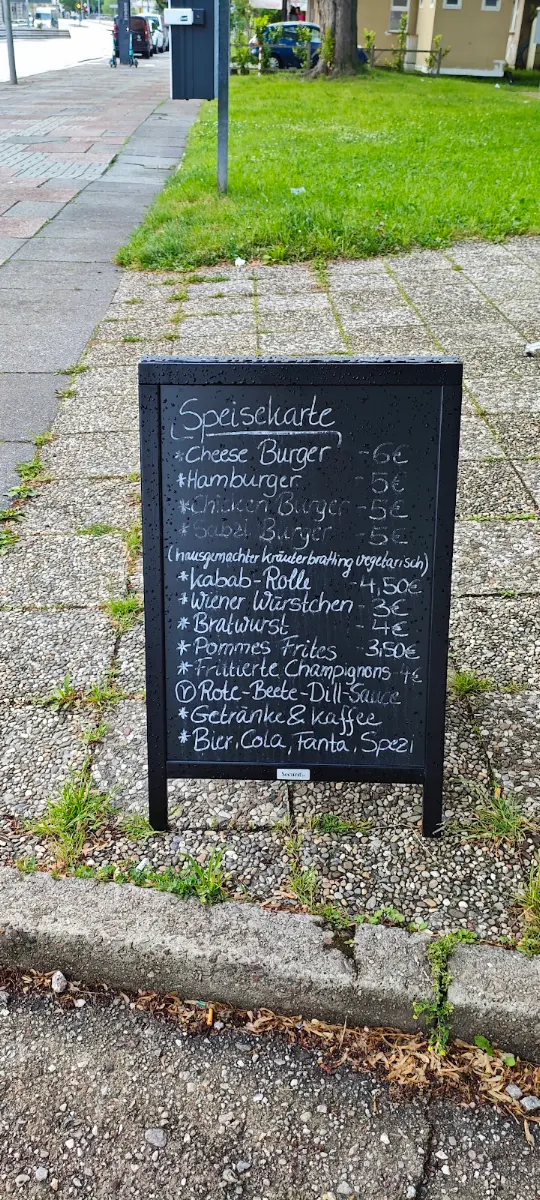 Speisekarte
*Cheese Burger - 6€
*Hamburger - 5€
*Chicken Burger - 5€
*Sabzi Burger - 5€
(hausgemachter Kräuterbratling vegetarisch)
*Kabab-Rolle - 4,50€
*Wiener Würstchen - 3€
*Bratwurst - 4€
*Pommes Frites - 3,50€
*Fritierte Champignons 4€
Ⓥ Rote-Beete-Dill-Sauce
*Getränke & Kaffee
*Bier, Cola, Fanta, Spezi
Securit